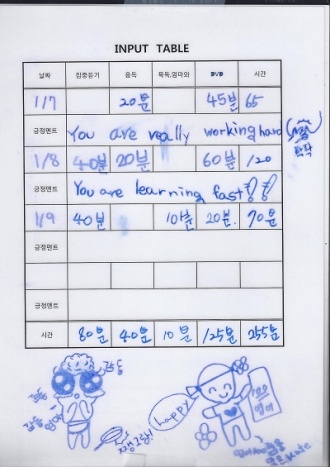 INPUT TABLE
날짜 집중듣기 음독 묵독,엄마와 DVD 시간
1/7 20분 45분 65
긍정멘트 You are really working hard
토닥
1/8 40분 20분 60분 120
긍정멘트 You are learning fast!
1/9 40분 10분 20분. 70분
긍정멘트
긍정멘트
시간 80분 40분 10분 125분 255분
감동
감동
happy
영어
Kate